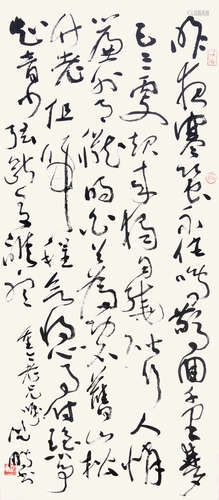 昨夜寒蛩不住鳴驚回千里夢
已三更起來獨自繞階行人悄
簾外月朧明白首為功名舊山松
竹老阻歸程欲將心事付瑤箏
知音少弦斷有誰聽
沈鵬